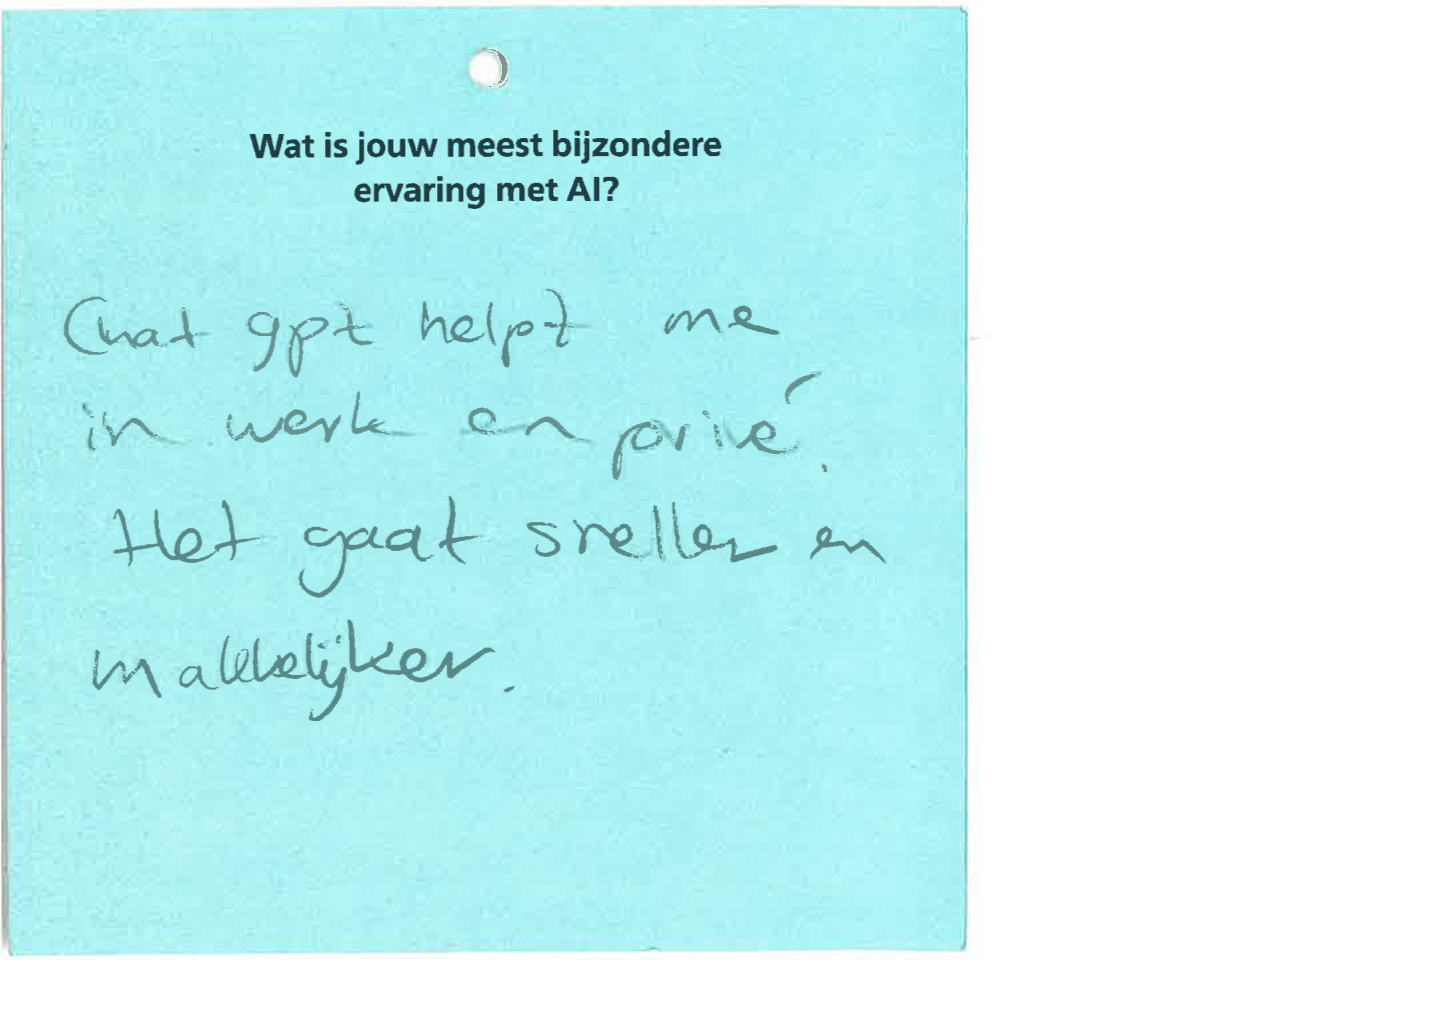 Wat is jouw meest bijzondere
ervaring met AI?
Chat gpt helpt me
in werk en privé.
Het gaat sneller en
makkelijker.